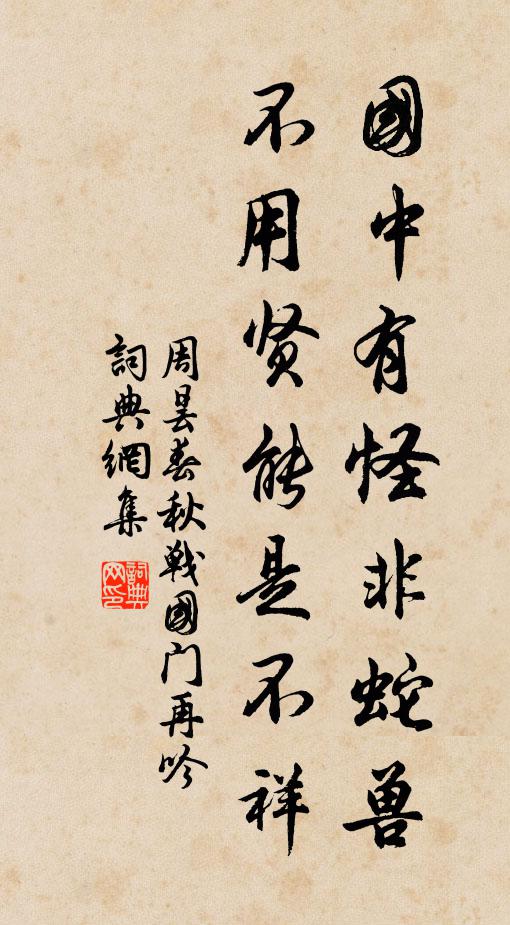 國中有怪非蛇兽
不用贤能是不祥
周昙春秋戦國门再吟
詞典網集
詞典
网印